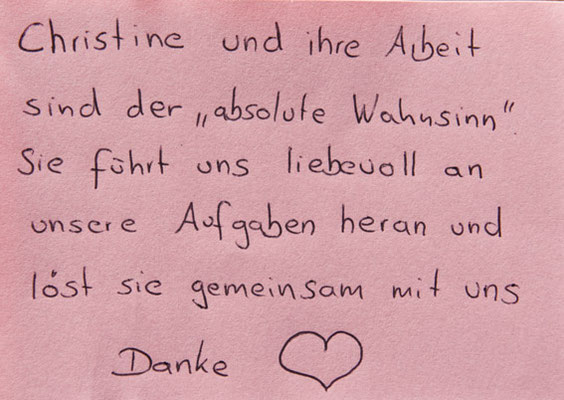 Christine und ihre Arbeit
sind der „absolute Wahnsinn“.
Sie führt uns liebevoll an
unsere Aufgaben heran und
löst sie gemeinsam mit uns
Danke